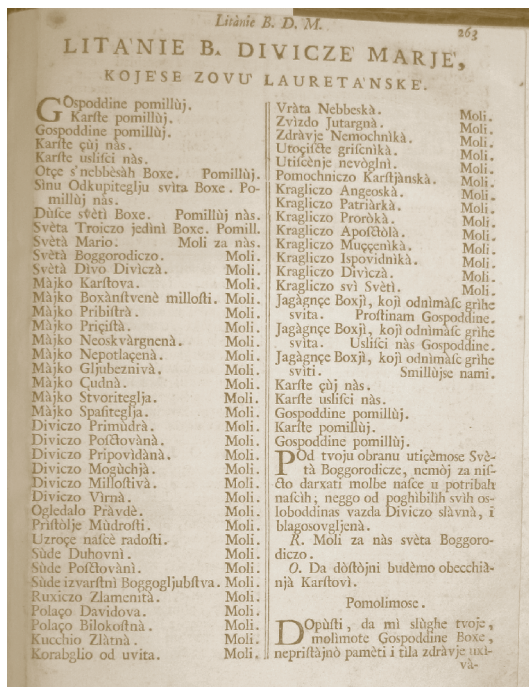 Litànie B. D. M.
263
LITA'NIE B. DIVICZE' MARJE',
KOJE'SE ZOVU' LAURETA'NSKE.
GOspoddine pomillùj.
Karſte pomillùj.
Gospoddine pomillùj.
Karſte çùj nàs.
Karſte usliſci nàs.
Otçe s'nebbèsàh Boxe. Pomillùj.
Sinu Odkupiteglju svìta Boxe. Po-
millùj nàs.
Dùſce svèti Boxe. Pomillùj nàs.
Svèta Troiczo jedìnì Boxe. Pomill.
Svètà Mario. Moli za nàs.
Svètà Boggorodiczo. Moli.
Svètà Dìvo Divìczà. Moli.
Màjko Karſtova. Moli.
Màjko Boxànſtvenè milloſti. Moli.
Màjko Pribiſtrà. Moli.
Màjko Priçiſtà. Moli.
Màjko Neoskvàrgnenà. Moli.
Màjko Nepotlaçenà. Moli.
Màjko Gljubeznivà. Moli.
Màjko Çudnà. Moli.
Màjko Stvoriteglja. Moli.
Màjko Spaſiteglja. Moli.
Diviczo Primùdrà. Moli.
Diviczo Poſctovànà. Moli.
Diviczo Pripovìdànà. Moli.
Diviczo Mogùchjà. Moli.
Diviczo Milloſtivà. Moli.
Diviczo Vìrnà. Moli.
Ogledalo Pràvdè. Moli.
Priſtòlje Mùdroſti. Moli.
Uzroçe naſcè radoſti. Moli.
Sùde Duhovnì. Moli.
Sùde Poſctovànì. Moli.
Sùde izvarſtnì Boggogljubſtva. Moli.
Ruxiczo Zlamenità. Moli.
Polaço Davidova. Moli.
Polaço Bilokoſtnà. Moli.
Kucchio Zlàtnà. Moli.
Korabglio od uvita. Moli.
Vràta Nebbeskà. Moli.
Zvìzdo Jutargnà. Moli.
Zdràvje Nemochnìkà. Moli.
Utoçiſcte griſcnìkà. Moli.
Utiſcènje nevògljnì. Moli.
Pomochniczo Karſtjànskà. Moli.
Kragliczo Angeoskà. Moli.
Kragliczo Patriàrkà. Moli.
Kragliczo Proròkà. Moli.
Kragliczo Apoſctòlà. Moli.
Kragliczo Muççenìkà. Moli.
Kragliczo Ispovidnìkà. Moli.
Kragliczo Divìczà. Moli.
Kragliczo svì Svèti. Moli.
Jagàgnçe Boxjì, kojì odnìmàſc grìhe
svita. Proſtinam Gospoddine.
Jagàgnçe Boxjì, kojì odnìmàſc grìhe
svita. Usliſci nàs Gospoddine.
Jagàgnçe Boxjì, kojì odnìmàſc grìhe
sviti. Smillùjse nami.
Karſte çùj nàs.
Karſte usliſci nàs.
Gospoddine pomillùj.
Karſte pomillùj.
Gospoddine pomillùj.
POd tvoju obranu utiçèmose Svè-
tà Boggorodicze, nemòj za niſ-
cto darxati molbe naſce u potribah
naſcìh; neggo od poghìbilìh svìh os-
loboddinas vazda Diviczo slàvnà, i
blagosovgljenà.
R. Moli za nàs svèta Boggoro-
diczo.
O. Da dòſtòjni budèmo obecchià-
njà Karſtovì.
Pomolimose.
DOpùſti, da mì slùghe tvoje,
molìmote Gospoddine Boxe,
nepriſtàjnò pamèti i tìla zdràvje uxi-
và-